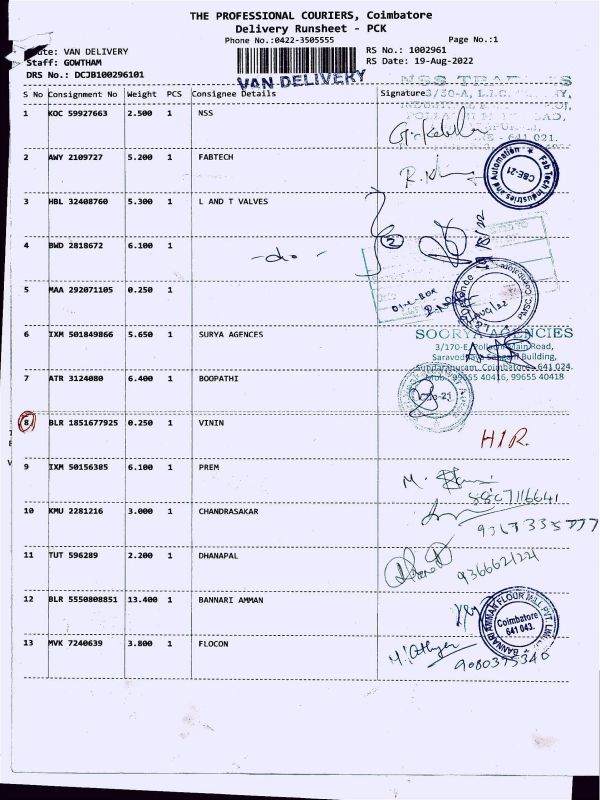 THE PROFESSIONAL COURIERS, Coimbatore
Delivery Runsheet - PCK
Phone No.:0422-3505555
Page No.:1
ute: VAN DELIVERY
RS No.: 1002961
Staff: GOWTHAM
RS Date: 19-Aug-2022
DRS No.: DCJB100296101
VAN DELIVERY
S No Consignment No Weight PCS Consignee Details Signature
3/50-A,
1 KOC 59927663 2.500 1 NSS
641 021.
2 AWY 2109727 5.200 1 FABTECH
Fab Tech Industries and Automation
CBE-21
3 HBL 32408760 5.300 1 L AND T VALVES
4 BWD 2818672 6.100 1
-do-
5 MAA 292071105 0.250 1
AUG/22
6 IXM 501849866 5.650 1 SURYA AGENCES
SOORYA AGENCIES
3/170-E, Pollachi Main Road,
Building,
Sundarapuram, Coimbatore - 641 024.
7 ATR 3124080 6.400 1 BOOPATHI
Mob: 99655 40416, 99655 40418
8 BLR 1851677925 0.250 1 VININ
H1R.
9 IXM 50156385 6.100 1 PREM
M.
8867116641
10 KMU 2281216 3.000 1 CHANDRASAKAR
11 TUT 596289 2.200 1 DHANAPAL
12 BLR 5550808851 13.400 1 BANNARI AMMAN
BANNARI AMMAN FLOUR MILL PVT. LIMITED
Coimbatore
641 043.
13 MVK 7240639 3.800 1 FLOCON
9080375346